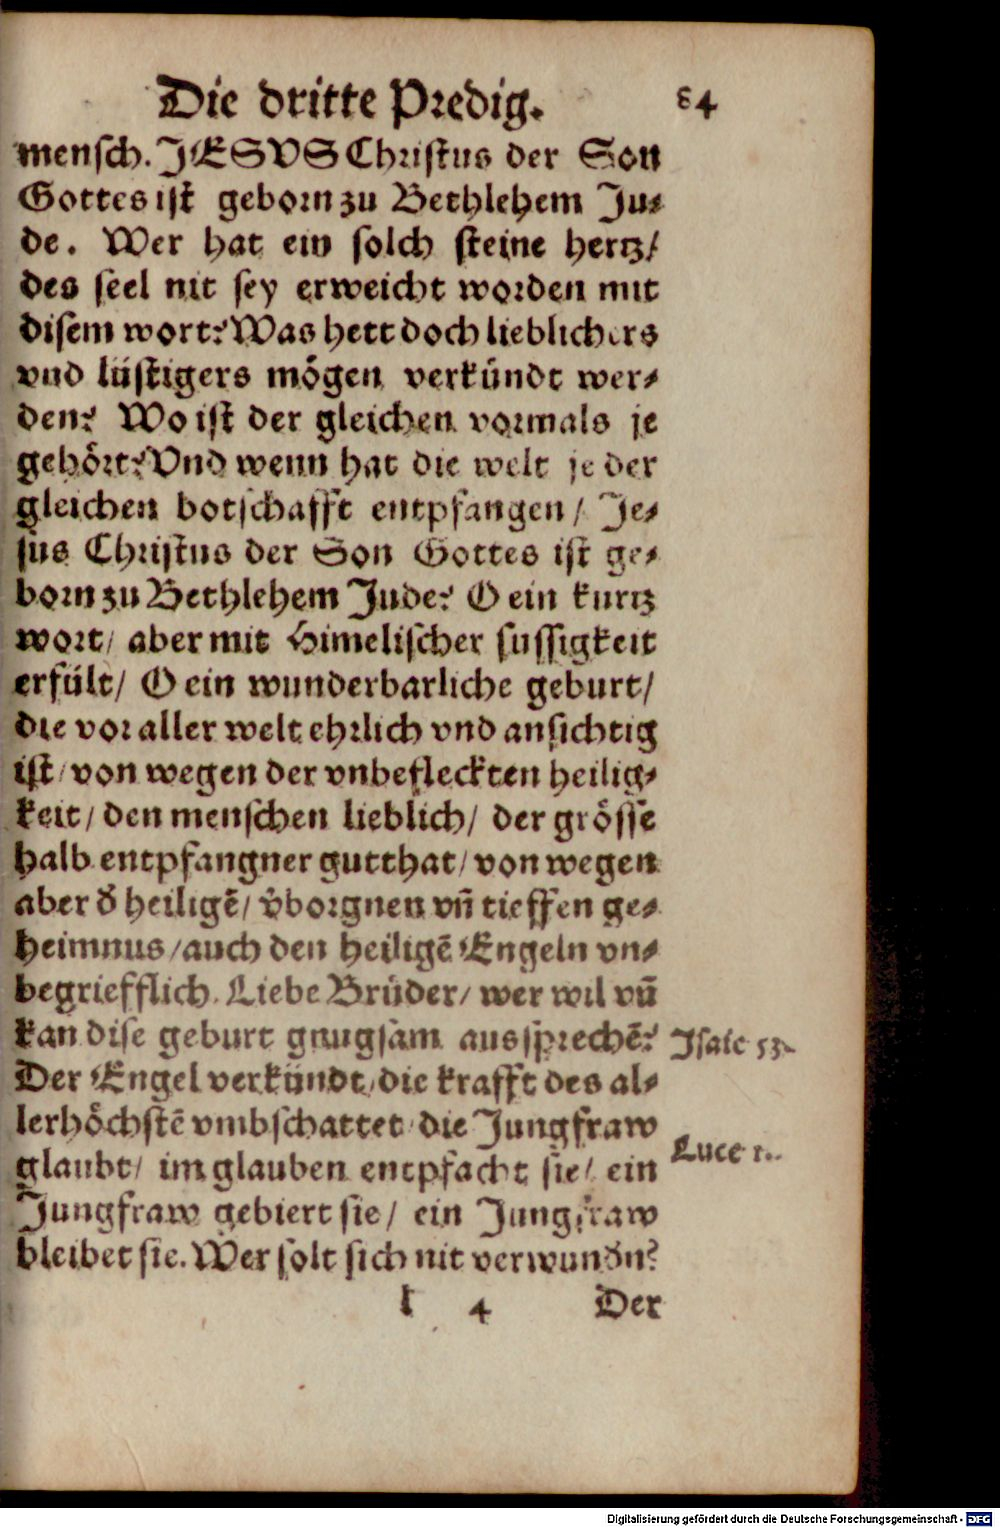 Die dritte Predig. 84
mensch. JESVS Christus der Son
Gottes ist geborn zu Bethlehem Ju⸗
de. Wer hat ein solch steine hertz/
des seel nit sey erweicht worden mit
disem wort? Was hett doch lieblichers
vnd lüstigers mögen verkündt wer⸗
den? Wo ist der gleichen vormals je
gehört? Vnd wenn hat die welt je der
gleichen botschafft entpfangen/ Je⸗
sus Christus der Son Gottes ist ge⸗
born zu Bethlehem Jude? O ein kurtz
wort/ aber mit Himelischer süssigkeit
erfült/ O ein wunderbarliche geburt/
die vor aller welt ehrlich vnd ansichtig
ist/ von wegen der vnbefleckten heilig⸗
keit/ den menschen lieblich/ der grösse
halb entpfangner gutthat/ von wegen
aber d' heiligē/ v'borgnen vn̄ tieffen ge⸗
heimnus/ auch den heiligē Engeln vn⸗
begriefflich. Liebe Brüder/ wer wil vn̄
kan dise geburt gnugsam aussprechē?
Isaie 53.
Der Engel verkündt/ die krafft des al⸗
lerhöchstē vmbschattet/ die Jungfraw
Luce 1.
glaubt/ im glauben entpfacht sie/ ein
Jungfraw gebiert sie/ ein Jungfraw
bleibet sie. Wer solt sich nit verwund'n?
l 4 Der
Digitalisierung gefördert durch die Deutsche Forschungsgemeinschaft - DFG